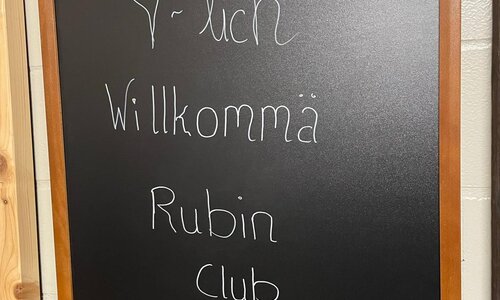 ♡~lich
Willkommä
Rubin
Club